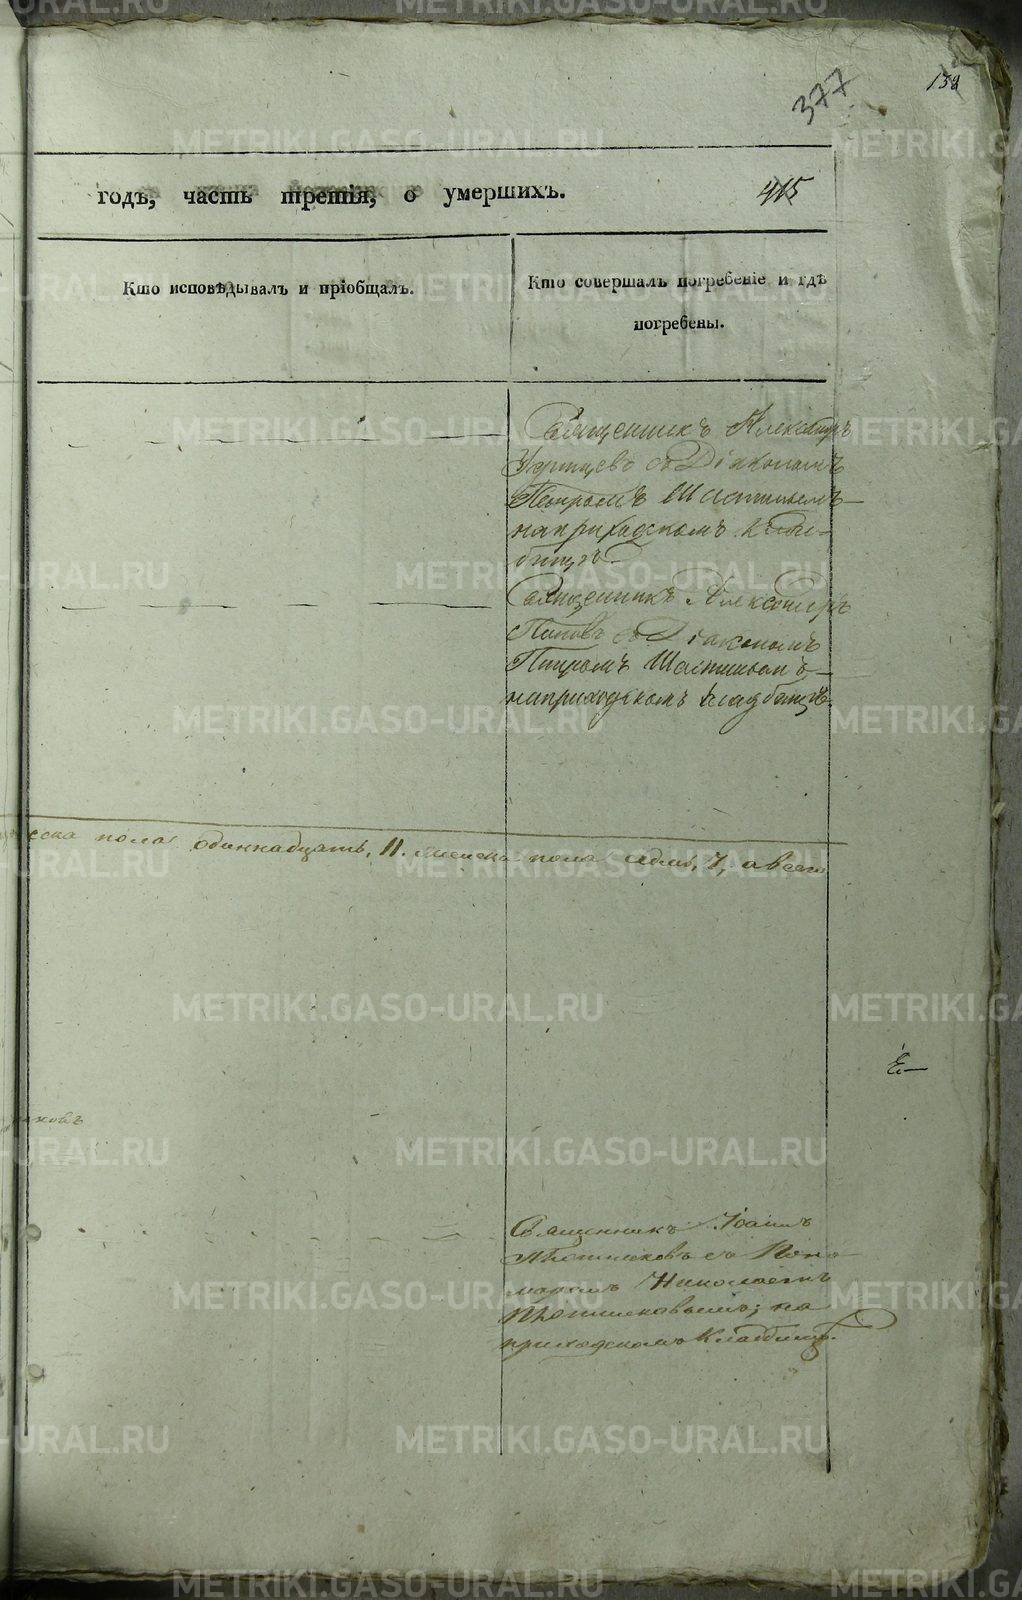 377
138
годъ, часть третія, о умершихъ.
415
Кто исповѣдывалъ и пріобщалъ.
Кто совершалъ погребеніе и гдѣ
погребены.
Священникъ Александръ
съ Діакономъ
Петромъ
на приходскомъ клад-
бищѣ.
Священникъ Александръ
Поповъ съ Діакономъ
Петромъ
на приходскомъ кладбищѣ.
ческа пола одиннадцать, 11. женска пола седмь, 7, а всего
Священникъ Іоаннъ
Плотниковъ съ Поно-
маремъ Николаемъ
Плотниковымъ; на
приходскомъ Кладбищѣ.
METRIKI.GASO-URAL.RU